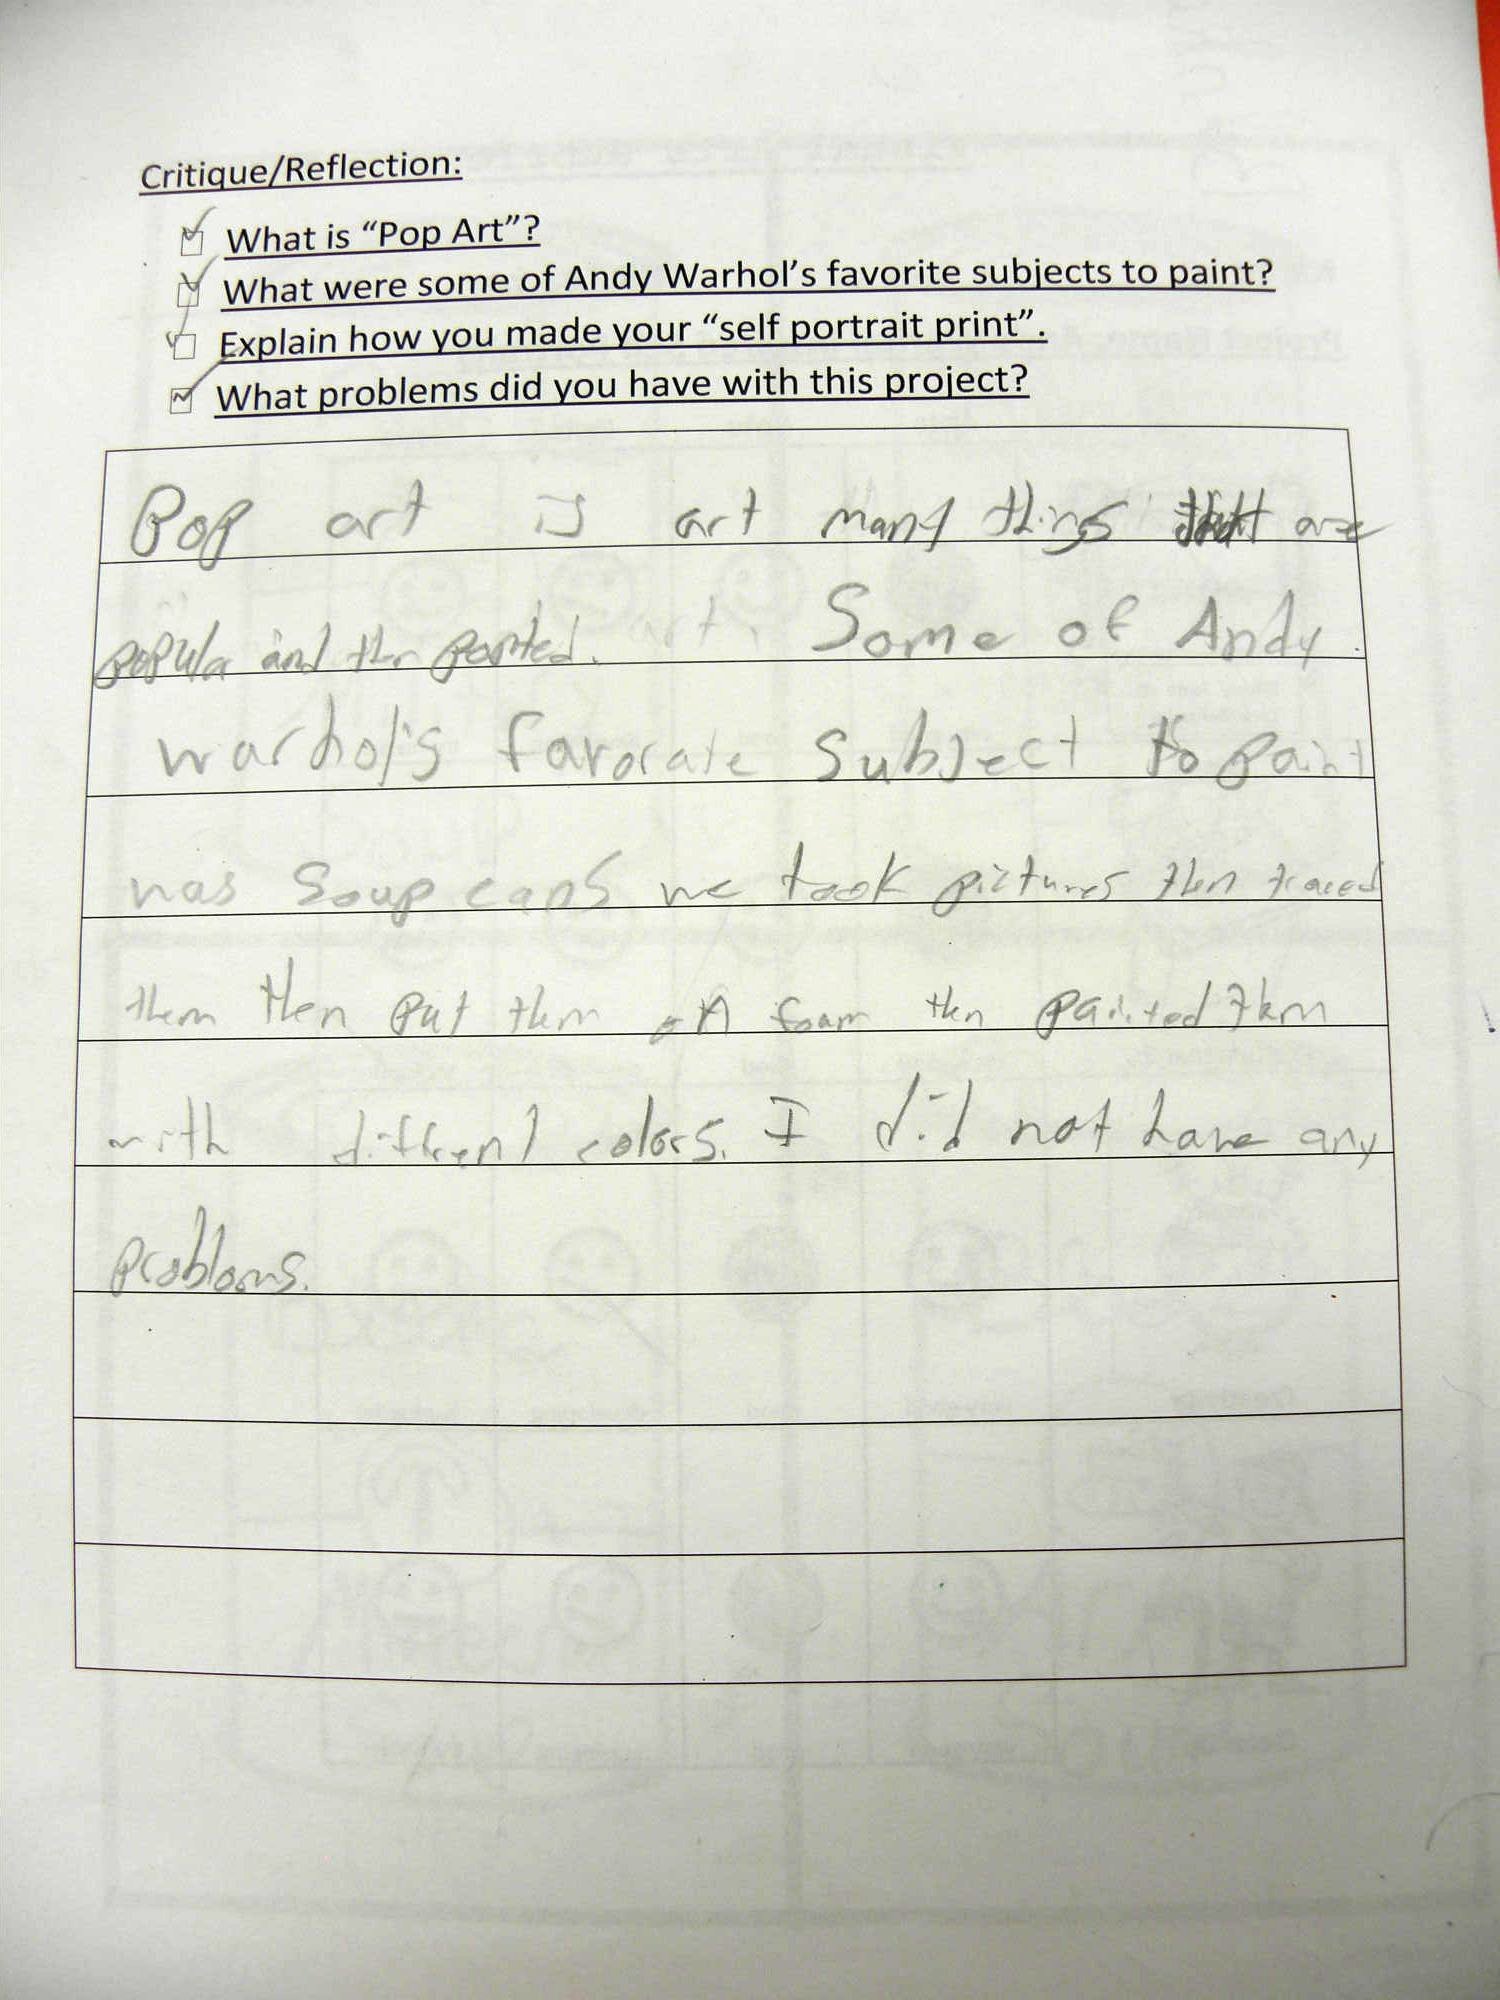 Critique/Reflection:
What is “Pop Art”?
What were some of Andy Warhol’s favorite subjects to paint?
Explain how you made your “self portrait print”.
What problems did you have with this project?
Pop art is art many things that are
popular and the painted.
Some of Andy
warhol's favorate subject to paint
was soup cans we took pictures then traced
them then put them on foam then painted them
with different colors. I did not have any
problems.